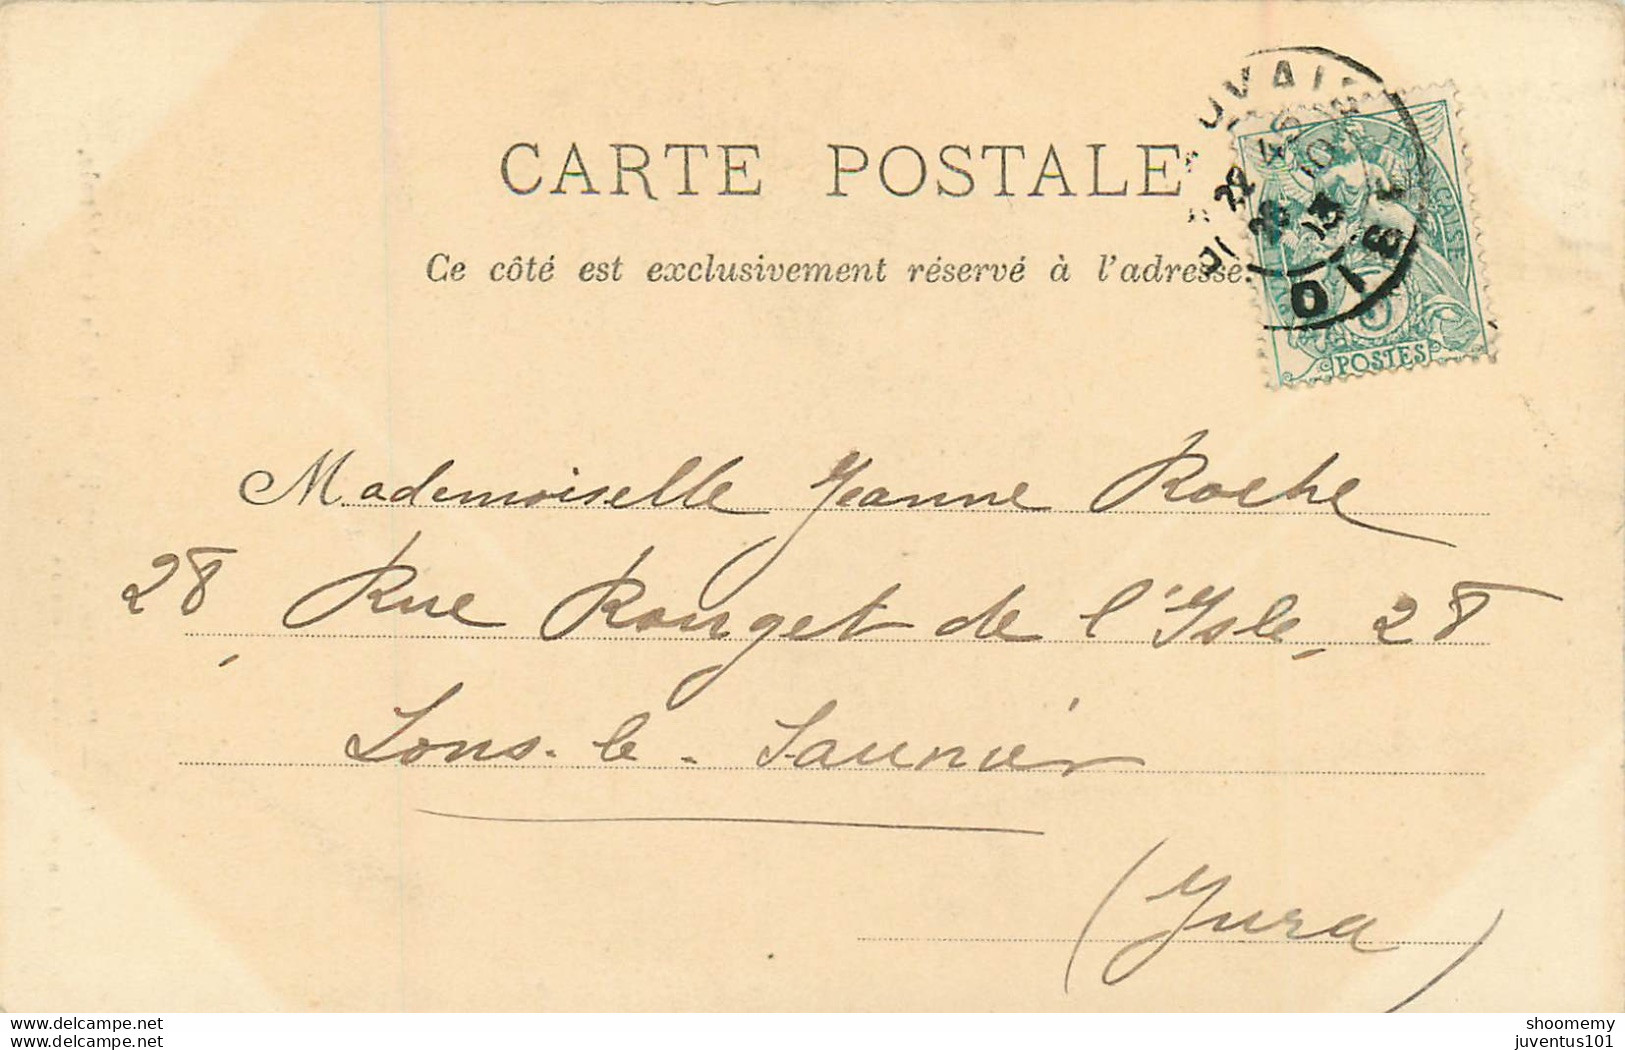 CARTE POSTALE
Ce côté est exclusivement réservé à l'adresse.
POSTES
5
OISE
Mademoiselle Jeanne Roche
28, Rue Rouget de l'Isle, 28
Lons-le-Saunier
(Jura)
www.delcampe.net
juventus101
shoomemy